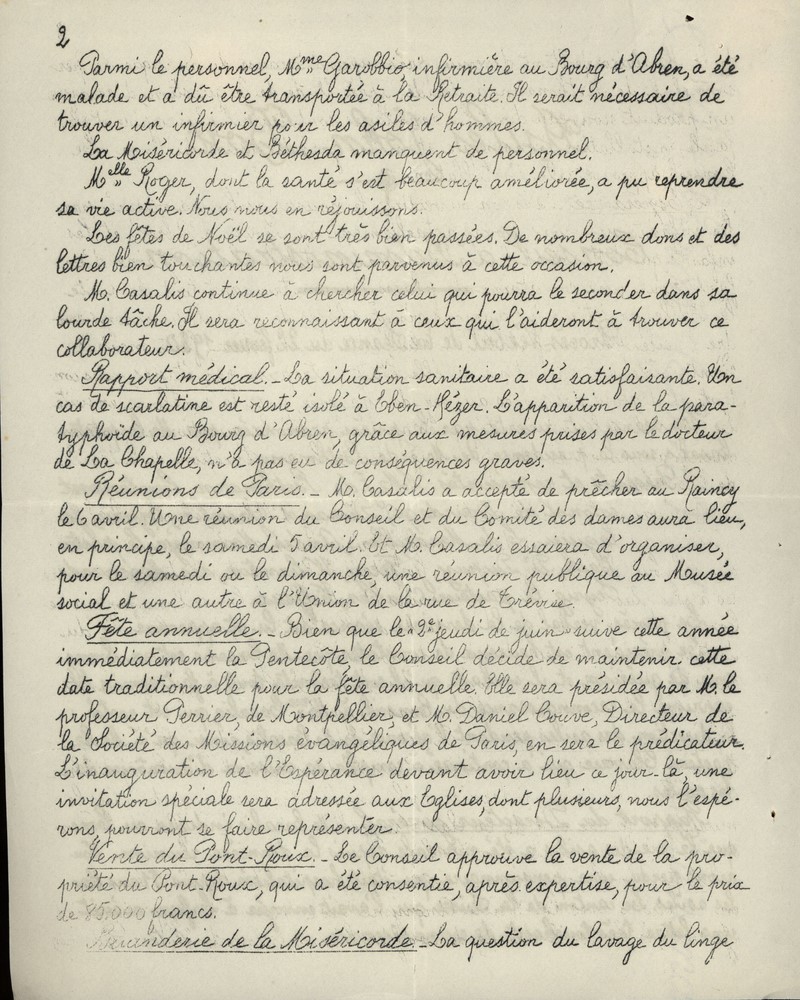 2
Parmi le personnel, Mme Garobbio, infirmière au Bourg d'Abren, a été
malade et a dû être transportée à la Retraite. Il serait nécessaire de
trouver un infirmier pour les asiles d'hommes.
La Miséricorde et Béthesda manquent de personnel.
Melle Roger, dont la santé s'est beaucoup améliorée, a pu reprendre
sa vie active. Nous nous en réjouissons.
Les fêtes de Noël se sont très bien passées. De nombreux dons et des
lettres bien touchantes nous sont parvenus à cette occasion.
M. Casalis continue à chercher celui qui pourra le seconder dans sa
lourde tâche. Il sera reconnaissant à ceux qui l'aideront à trouver ce
collaborateur.
Rapport médical. - La situation sanitaire a été satisfaisante. Un
cas de scarlatine est resté isolé à Eben-Hézer. L'apparition de la para-
typhoïde au Bourg d'Abren, grâce aux mesures prises par le docteur
de La Chapelle, n'a pas eu de conséquences graves.
Réunions de Paris. - M. Casalis a accepté de prêcher au Raincy
le 6 avril. Une réunion du Conseil et du Comité des dames aura lieu,
en principe, le samedi 5 avril. Et M. Casalis essaiera d'organiser,
pour le samedi ou le dimanche, une réunion publique au Musée
social et une autre à l'Union de la rue de Trévise.
Fête annuelle. - Bien que le "2e jeudi de juin" suive cette année
immédiatement la Pentecôte, le Conseil décide de maintenir cette
date traditionnelle pour la fête annuelle. Elle sera présidée par M. le
professeur Perrier, de Montpellier, et M. Daniel Couve, Directeur de
la Société des Missions évangéliques de Paris, en sera le prédicateur.
L'inauguration de l'Espérance devant avoir lieu ce jour-là, une
invitation spéciale sera adressée aux Eglises, dont plusieurs, nous l'espé-
rons, pourront se faire représenter.
Vente du Pont-Roux. - Le Conseil approuve la vente de la pro-
priété du Pont-Roux, qui a été consentie, après expertise, pour le prix
de 85.000 francs.
Buanderie de la Miséricorde. - La question du lavage du linge